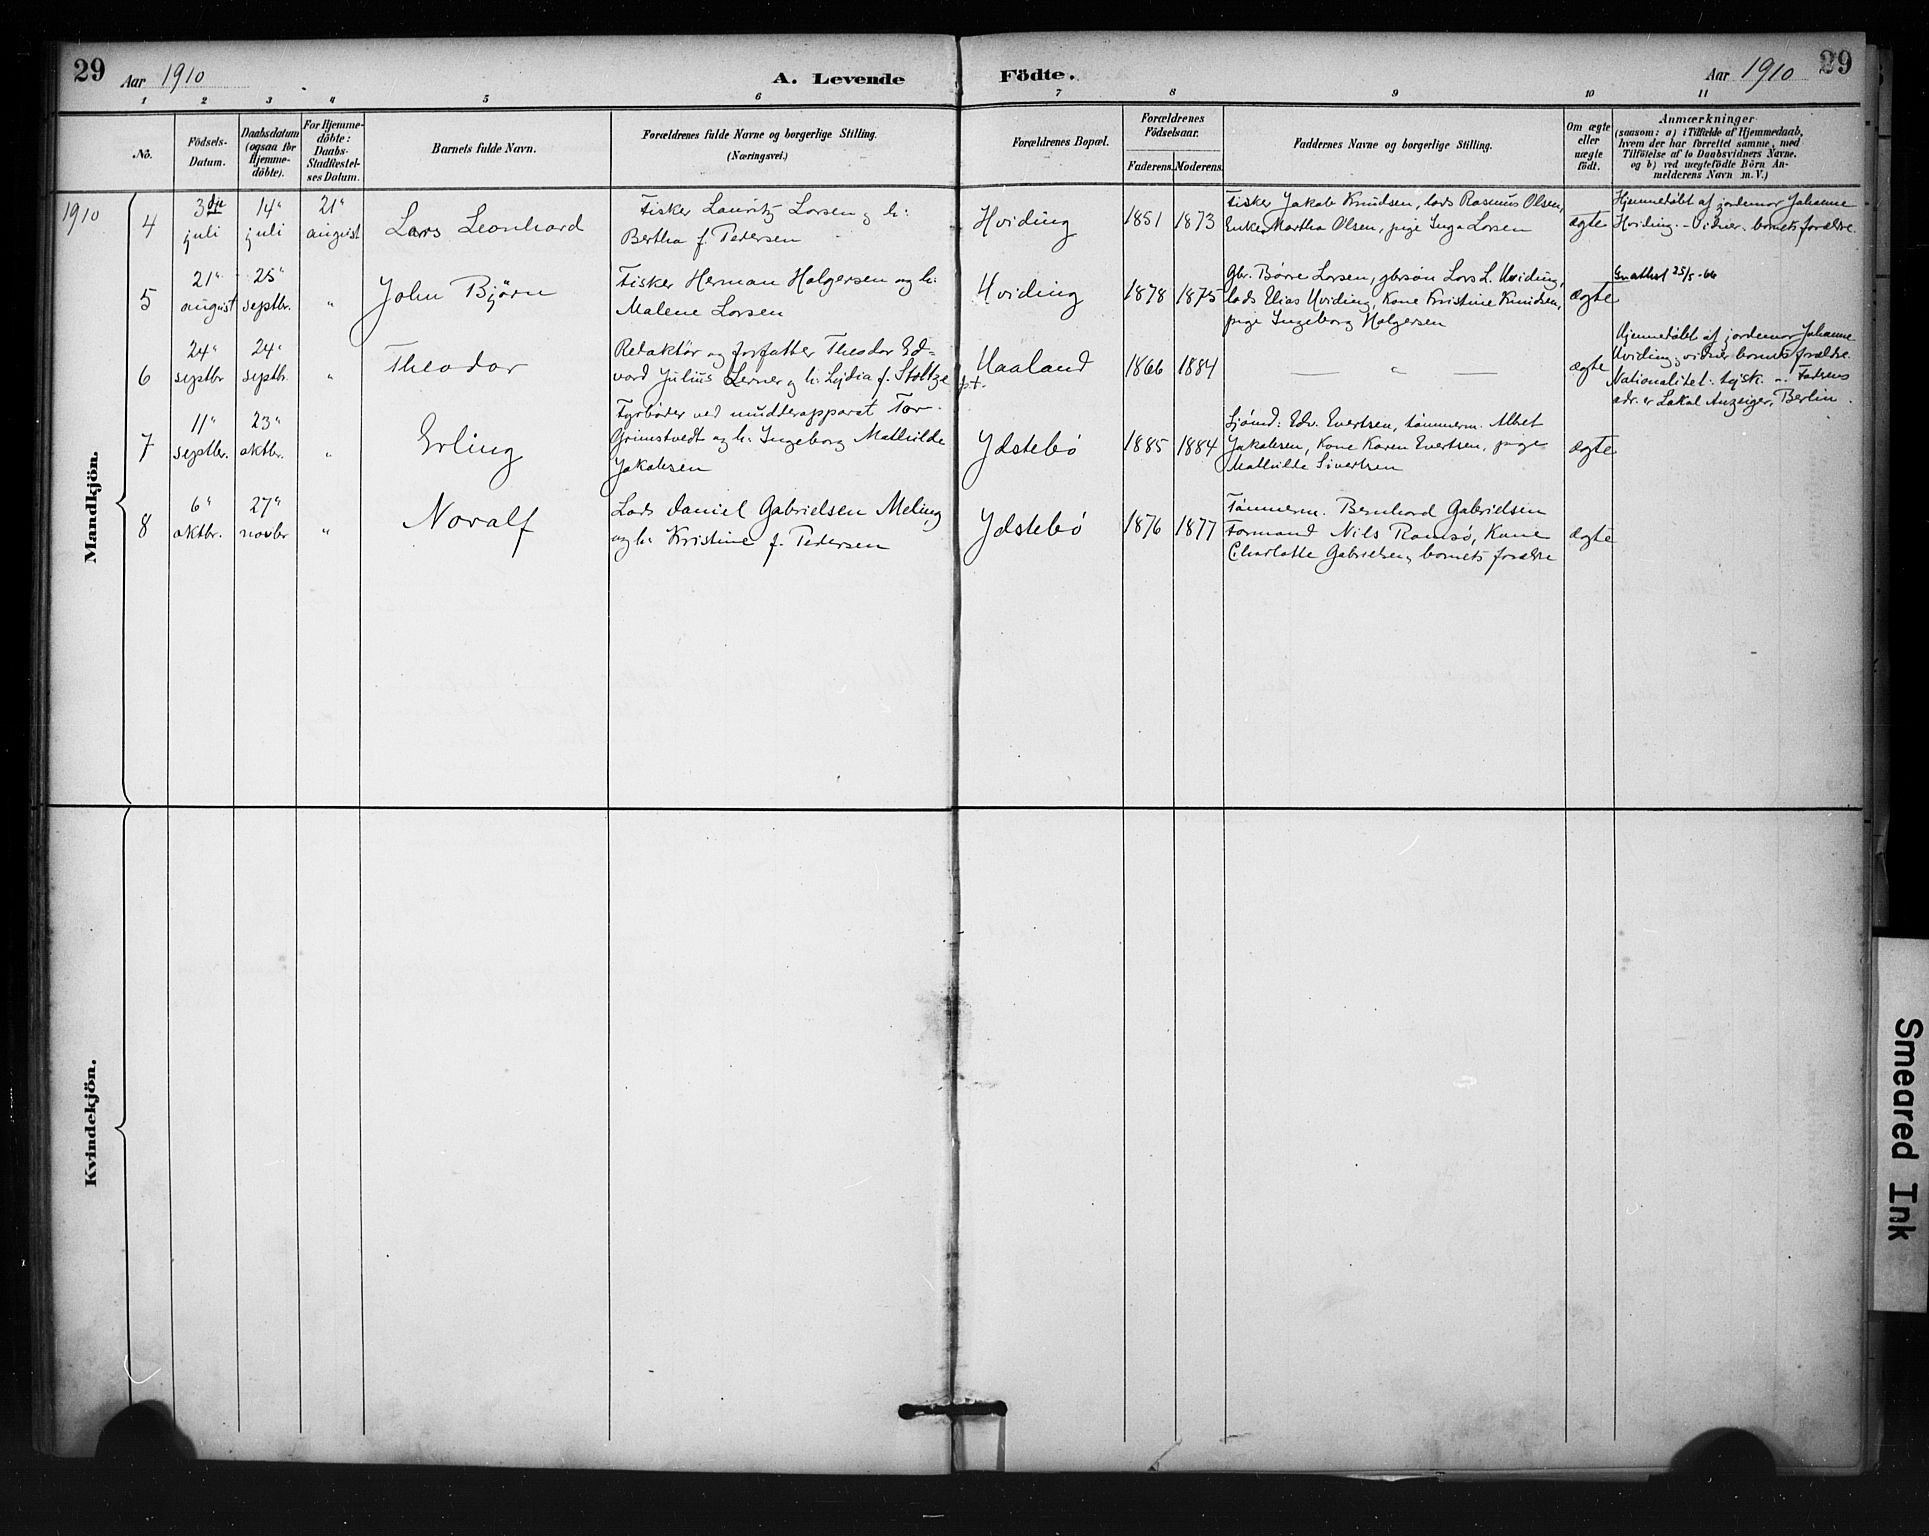 29
Aar 1910
A. Levende
Födte.
Aar 1910
29
1 2 3 4 5 6 7 8 9 10 11
No.
Födsels-
Datum.
Daabsdatum
(ogsaa for
Hjemme-
döbte).
For Hjemme-
döbte:
Daabs-
Stadfæstel-
ses Datum.
Barnets fulde Navn.
Forældrenes fulde Navne og borgerlige Stilling.
(Næringsvei.)
Forældrenes Bopæl.
Forældrenes
Födselsaar.
Faderens. Moderens.
Faddernes Navne og borgerlige Stilling.
Om ægte
eller
uægte
födt.
Anmærkninger
(saasom: a) i Tilfælde af Hjemmedaab,
hvem der har forrettet samme, med
Tilföielse af to Daabsvidners Navne,
og b) ved uægtefödte Börn An-
melderens Navn m. V.)
1910
Mandkjön.
4
3dje
juli
14"
juli
21"
august
Lars Leonhard
Fisker Lauritz Larsen og h:
Bertha f. Pedersen
Hviding
1851 1873
Fisker Jakob Knudsen, lods Rasmus Olsen,
Enke Martha Olsen, pige Inga Larsen
ægte
Hjemmedøbt af jordemor Johanne
Hviding. - Vidner: barnets forældre
5
21"
august
25"
septbr.
"
John Bjørn
Fisker Herman Holgersen og h:
Malene Larsen
Hviding
1878 1875
Gbr. Børre Larsen, gbrsøn Lars L. Hviding,
lods Elias Hviding, Kone Kristine Knudsen,
pige Ingeborg Holgersen
ægte
25/5-66
6
24"
septbr
24"
septb.
"
Theodor
Redaktør og forfatter Theodor Ed-
vard Julius Lerner og h: Lydia f. Stoltze
p.t.
Haaland
1866 1884
— " —
ægte
Hjemmedøbt af jordemor Johanne
Hviding, vidner barnets forældre.
Nationalitet: tysk. - Faderens
adr. er Lokal Anzeiger, Berlin.
7
11"
septbr.
23"
oktbr.
"
Erling
Fyrbøder ved mudderapparat Tor-
Grimstvedt og h. Ingeborg Mathilde
Jakobsen
Ydstebø
1885 1884
Sjømd: Edv. Evertsen, tømmerm. Albet
Jakobsen, Kone Karen Evertsen, pige
Mathilde Sivertsen
ægte
8
6"
oktbr.
27"
novbr
"
Noralf
Lods Daniel Gabrielsen Meling
og h. Kristine f. Pedersen
Ydstebø
1876 1877
Tømmerm. Bernhard Gabrielsen
Formand Nils Ramsø, Kone
Charlotte Gabrielsen, barnets forældre
ægte
Kvindekjön.
Smeared Ink